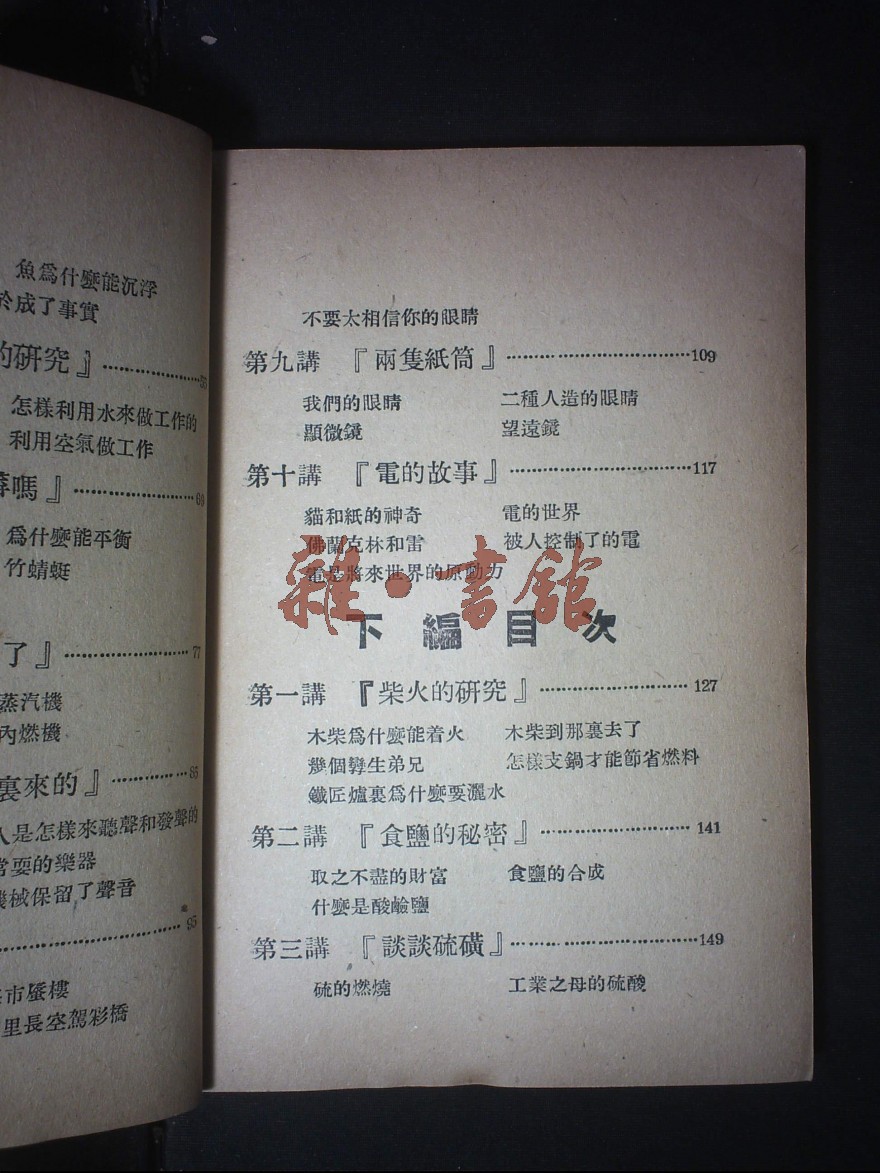 魚爲什麼能沉浮
於成了事實
的硏究』
怎樣利用水來做工作的
利用空氣做工作
嗎』
爲什麼能平衡
竹蜻蜓
了』 77
蒸汽機
內燃機
裏來的』 85
人是怎樣來聽聲和發聲的
常耍的樂器
機械保留了聲音
95
市蜃樓
里長空駕彩橋
不要太相信你的眼睛
第九講 『兩隻紙筒』 109
我們的眼睛 二種人造的眼睛
顯微鏡 望遠鏡
第十講 『電的故事』 117
貓和紙的神奇 電的世界
佛蘭克林和雷 被人控制了的電
電是將來世界的原動力
雜·書館
下編目次
第一講 『柴火的硏究』 127
木柴爲什麼能着火 木柴到那裏去了
幾個孿生弟兄 怎樣支鍋才能節省燃料
鐵匠爐裏爲什麼要灑水
第二講 『食鹽的秘密』 141
取之不盡的財富 食鹽的合成
什麼是酸鹼鹽
第三講 『談談硫磺』 149
硫的燃燒 工業之母的硫酸